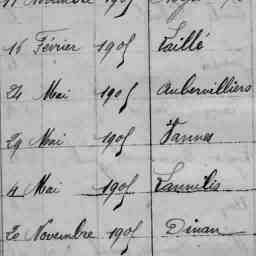 Novembre 1905
16 Février 1905 Taillé
24 Mai 1905 Aubervilliers
29 Mai 1905 Vannes
4 Mai 1905 Lannilis
20 Novembre 1905 Dinan